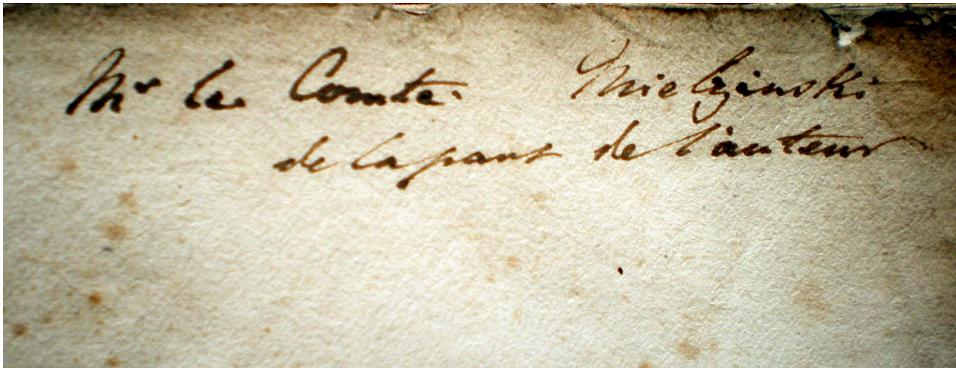 Mr le Comte Mielzinski
de la part de l'auteur